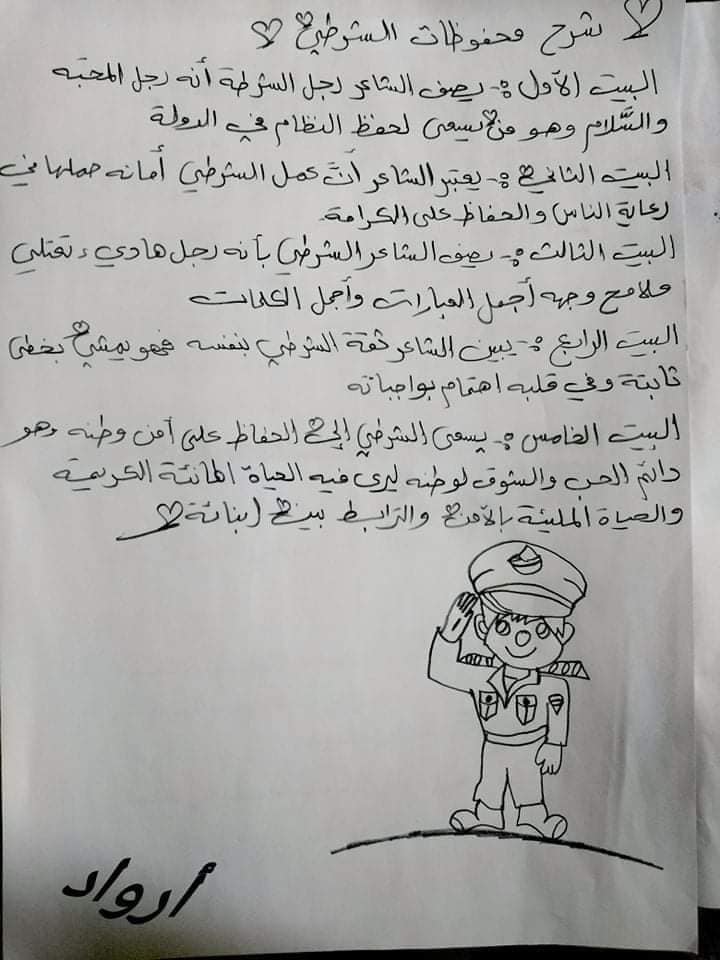 شرح محفوظات الشرطي
البيت الأول :- يصف الشاعر رجل الشرطة أنه رجل المحبه
والسَّلام وهو من يسعى لحفظ النظام في الدولة
البيت الثاني :- يعتبر الشاعر أنَّ عمل الشرطي أمانه حملها في
رعاية الناس والحفاظ على الكرامة.
البيت الثالث :- يصف الشاعر الشرطي بأنه رجل هادىء تعتلي
ملامح وجهه أجمل العبارات وأجمل الكلمات
البيت الرابع :- يبين الشاعر ثقة الشرطي بنفسه فهو يمشي بخطى
ثابتة وفي قلبه اهتمام بواجباته
البيت الخامس :- يسعى الشرطي إلى الحفاظ على أمن وطنه وهو
دائم الحب والشوق لوطنه ليرى فيه الحياة الهانئة الكريمة
والحياة المليئة بالأمن والترابط بين ابنائة
أرواد